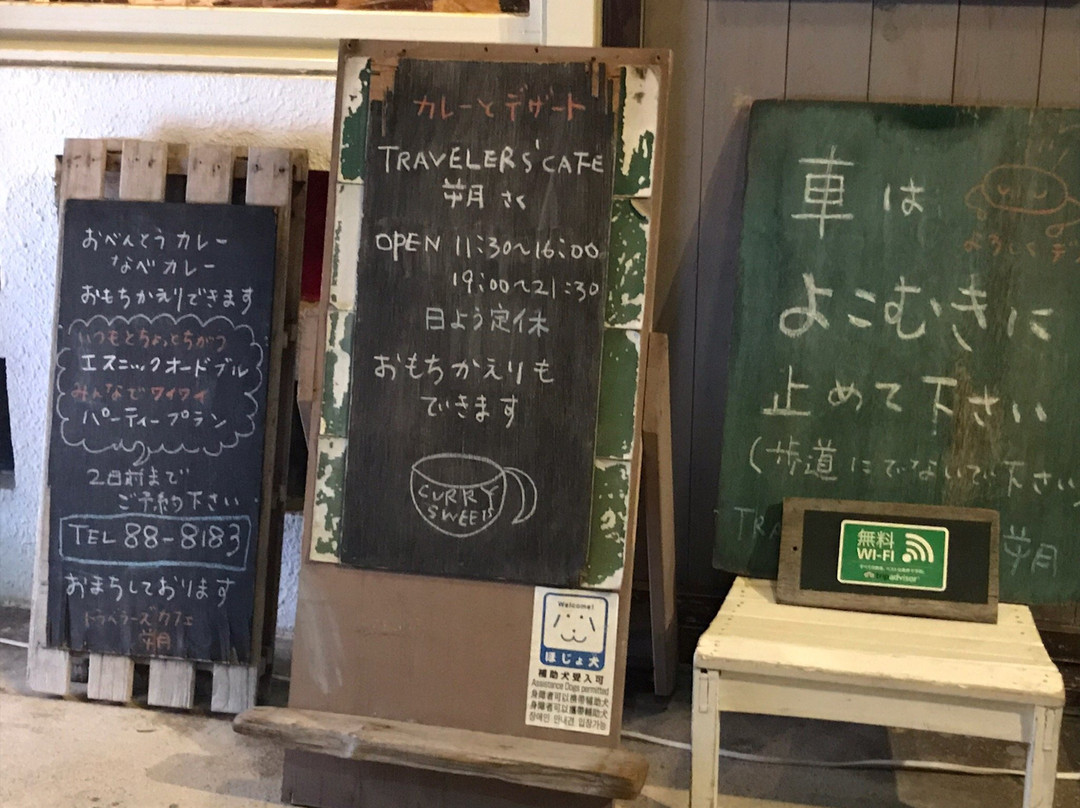 おべんとうカレー
なべカレー
おもちかえりできます
いつもとちょっとちがう
エスニックオードブル
みんなでワイワイ
パーティープラン
2日前まで
ご予約下さい
TEL 88-8183
おまちしております
トラベラーズカフェ
朔
カレーとデザート
TRAVELERS'CAFE
朔 さく
OPEN 11:30~16:00
19:00~21:30
日よう定休
おもちかえりも
できます
CURRY
SWEETS
Welcome!
ほじょ犬
補助犬受入可
Assistance Dogs permitted
身障者可以携帯輔助犬
身障者可以攜帶輔助犬
장애인 안내견 입장가능
車は
よろしく
よこむきに
止めて下さい
(歩道にでないで下さい
TRA
朔
無料
WI-FI
tripadvisor